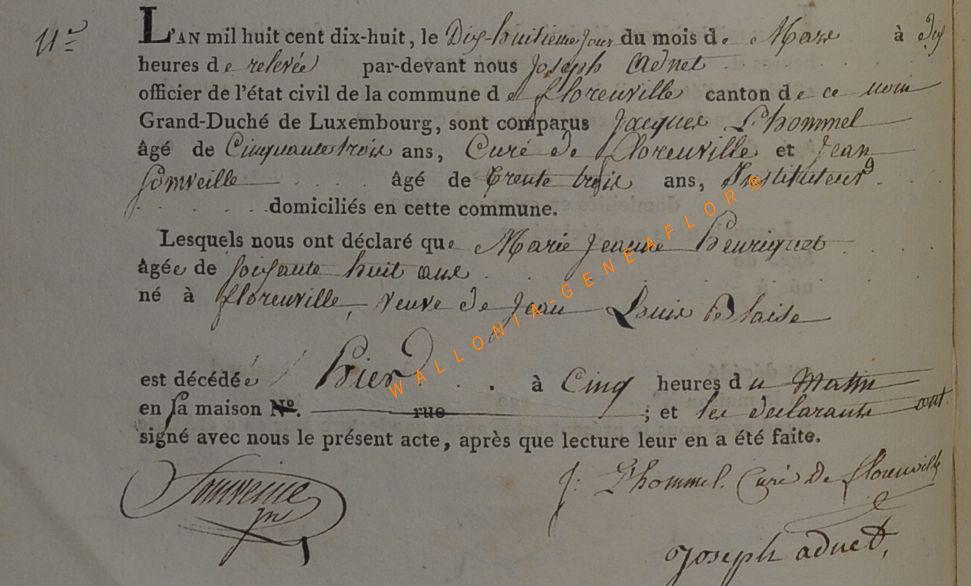 11e
L'AN mil huit cent dix-huit, le Dix-huitième jour du mois de Mars à dix
heures de relevée par-devant nous Joseph Adnet
officier de l'état civil de la commune de florenville canton de ce nom
Grand-Duché de Luxembourg, sont comparus Jacques L'hommel
âgé de Cinquante trois ans, Curé de florenville et Jean
âgé de trente trois ans, Instituteur
domiciliés en cette commune.
Lesquels nous ont déclaré que Marie Jeanne Henriquet
âgée de soixante huit ans
né à florenville, veuve de Jean Louis Blaise
est décédée Hier à Cinq heures du Matin
en sa maison No. rue ; et les declarants ont
signé avec nous le présent acte, après que lecture leur en a été faite.
J. L'hommel Curé de florenville
Joseph adnet,
WALLONIA-GENEAFLORE